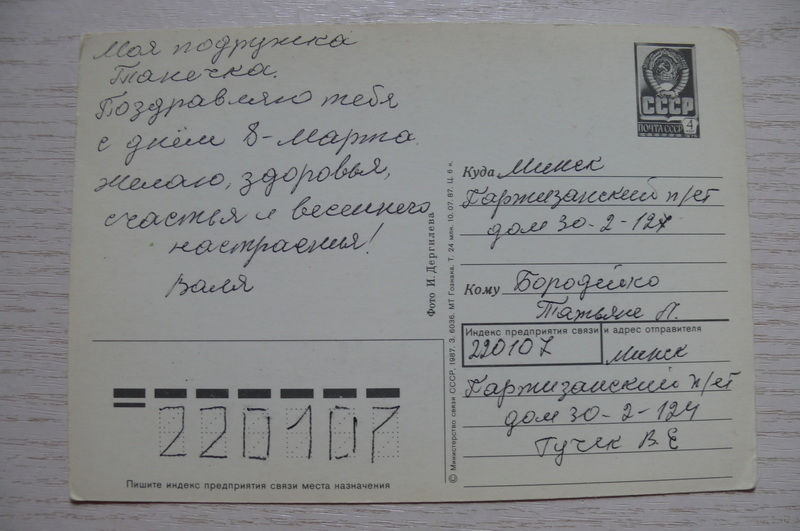 Моя подружка
Танечка.
Поздравляю тебя
с днём 8-Марта.
Желаю, здоровья,
счастья и весеннего
настраения!
Валя
СССР
ПОЧТА СССР 4
Куда Минск
Партизанский п/ст
дом 30-2-127
Кому Бородейко
Татьяне Л.
Индекс предприятия связи и адрес отправителя
220107 Минск
Партизанский п/ст
дом 30-2-124
Гучек В.Е
Фото И. Дергилева
© Министерство связи СССР, 1987. З. 6036. МТ Гознака. Т. 24 млн. 10.07.87. Ц. 6 к.
220107
Пишите индекс предприятия связи места назначения